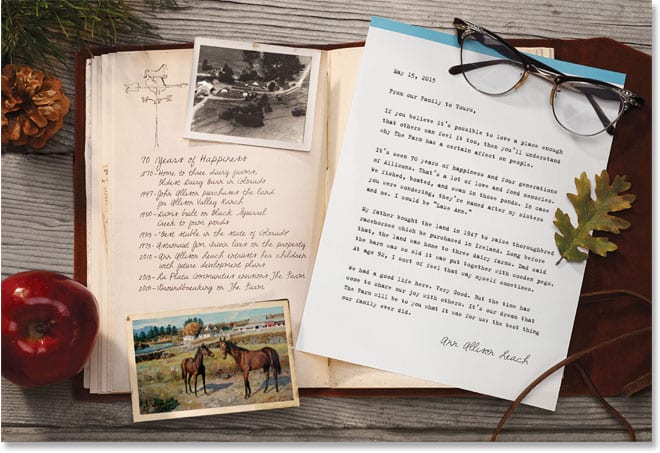 70 Years of Happiness
1870-Home to three dairy farms,
Oldest Dairy barn in Colorado
1947-John Allison purchases the land
for Allison Valley Ranch
1950-Dams built on Black Squirrel
Creek to form ponds
Best stable in the state of Colorado
Astronaut Jim Irwin lives on the property
2010-Ann Allison Leach entrusts her children
with future development plans
2013-La Plata Communities envisions The Farm
2015-Groundbreaking on The Farm
May 15, 2015
From our Family to Yours,
If you believe it's possible to love a place enough
that others can feel it too, then you'll understand
why The Farm has a certain affect on people.
It's seen 70 years of happiness and four generations
of Allisons. That's a lot of love and fond memories.
We fished, boated, and swam in those ponds. In case
you were wondering, they're named after my sisters
and me. I would be "Lake Ann."
My father bought the land in 1947 to raise thoroughbred
racehorses which he purchased in Ireland. Long before
that, the land was home to three dairy farms. Dad said
the barn was so old it was put together with wooden pegs.
At age 92, I sort of feel that way myself sometimes.
We had a good life here. Very Good. But the time has
come to share our joy with others. It's our dream that
The Farm will be to you what it was for us: the best thing
our family ever did.
Ann Allison Leach